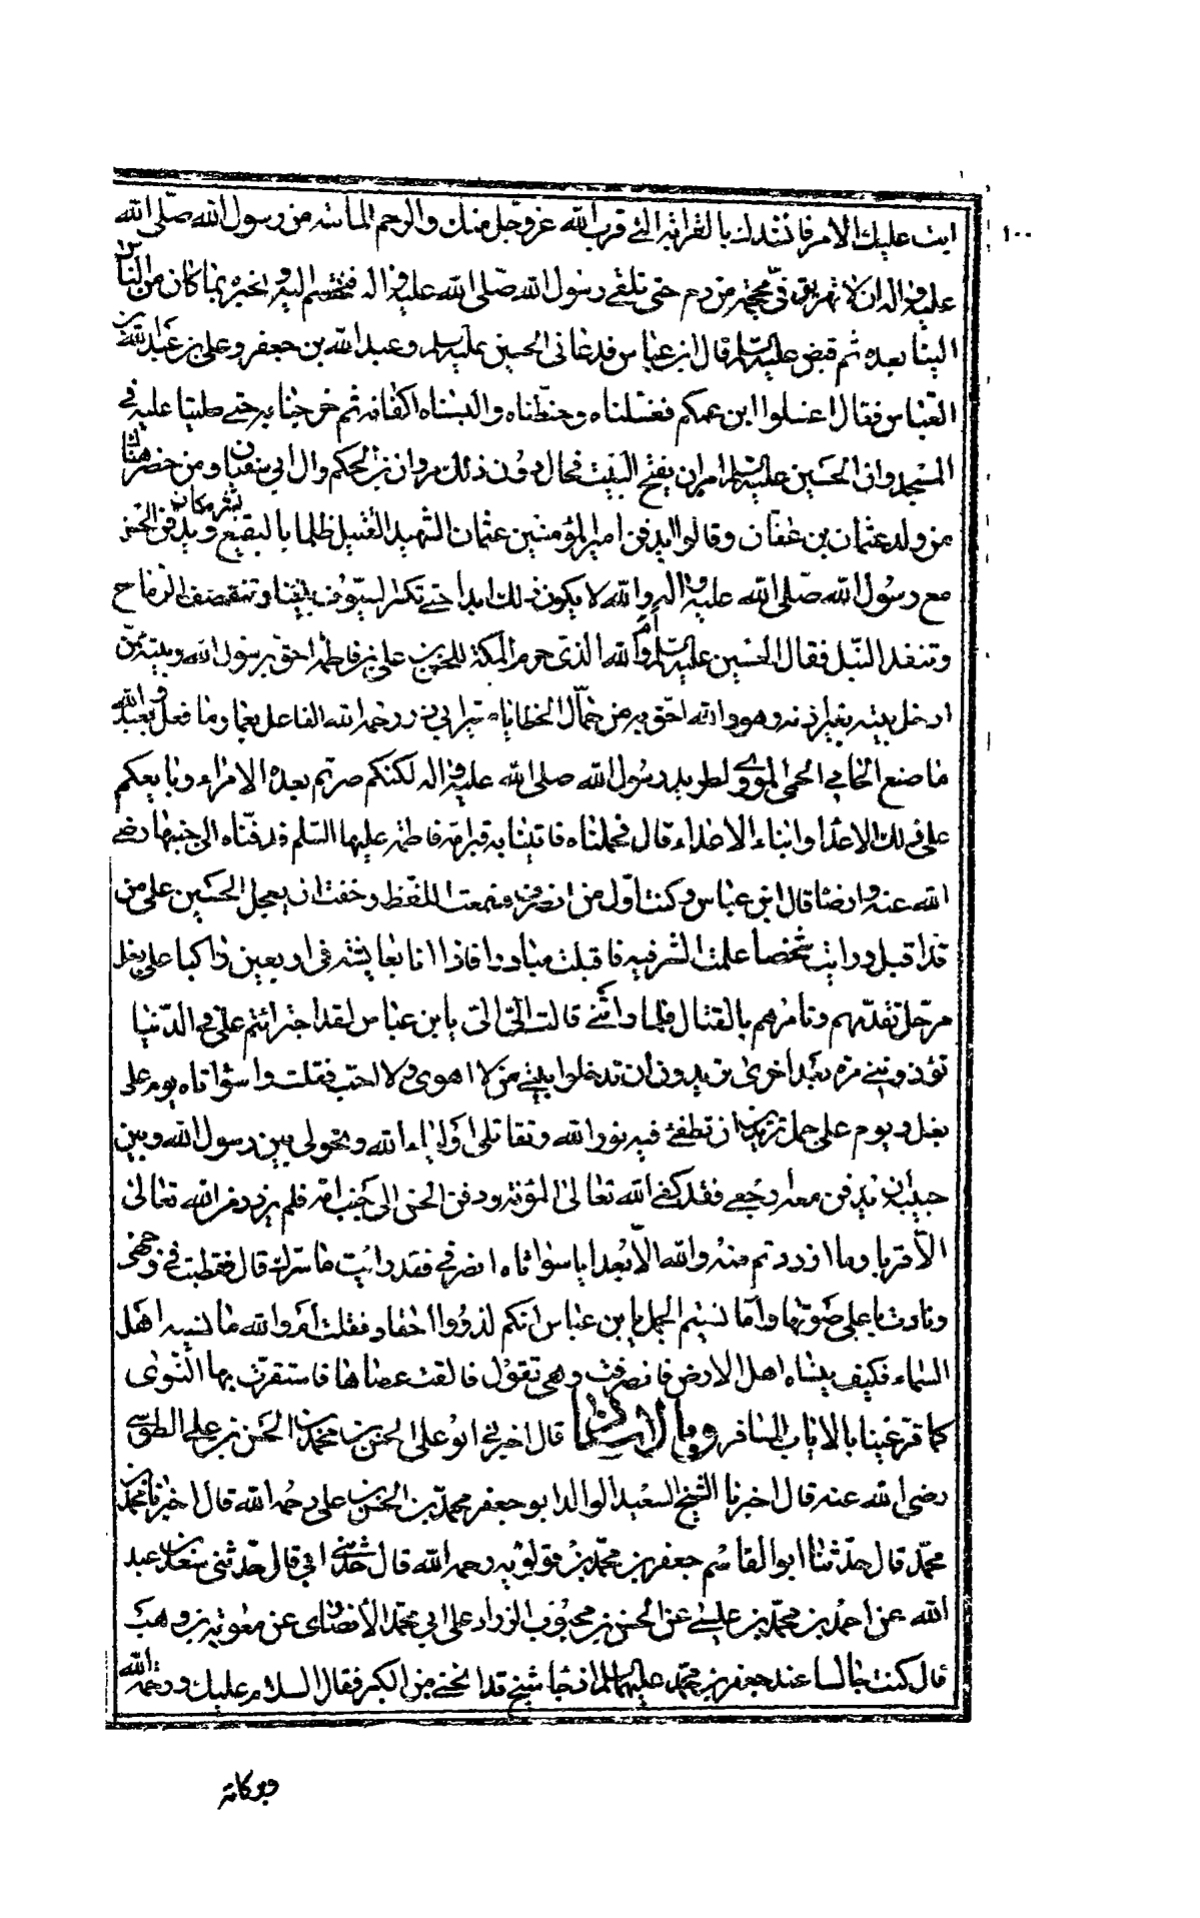 ١٠٠
ابت عليك الامر فانشدك بالقرابة التي قرب الله عز وجل منك والرحم الماسة من رسول الله صلى الله
عليه واله ان لا تهريق في محجمة من دم حتى نلقى رسول الله صلى الله عليه واله فنختصم اليه ونخبره بما كان من الناس
الينا بعده ثم قبض عليه السلم قال ابن عباس فدعاني الحسين عليه السلم وعبد الله بن جعفر وعلي بن عبد الله بن
العباس فقال اغسلوا ابن عمكم فغسلناه وحنطناه والبسناه اكفانه ثم خرجنا به حتى صلينا عليه في
المسجد وان الحسين عليه السلم امر ان يفتح البيت فحال دون ذلك مروان بن الحكم وال ابي سفيان ومن حضر هناك
من ولد عثمان بن عفان وقالوا ايدفن امير المؤمنين عثمان الشهيد القتيل ظلما بالبقيع بشر مكان ويدفن الحسن
مع رسول الله صلى الله عليه واله والله لا يكون ذلك ابدا حتى تكسر السيوف بيننا وتنقصف الرماح
وتنفد النبل فقال الحسين عليه السلم ام والله الذي حرم مكة للحسن بن علي بن فاطمة احق برسول الله وبيته ممن
ادخل بيته بغير اذنه وهو والله احق به من حمال الخطايا مسير ابي ذر رحمه الله الفاعل بعمار ما فعل وبعبد الله
ما صنع الحامي الحمى المؤوي لطريد رسول الله صلى الله عليه واله لكنكم صرتم بعده الامراء وبايعكم
على ذلك الاعداء وابناء الاعداء قال فحملناه فاتينا به قبر امه فاطمة عليها السلم فدفناه الى جنبها رضي
الله عنه وارضاه قال ابن عباس وكنت اول من انصرف فسمعت اللغط وخفت ان يعجل الحسين على من
قد اقبل ورايت شخصا علمت الشر فيه فاقبلت مبادرا فاذا انا بعايشة في اربعين راكبا على بغل
مرحل تقدمهم وتامرهم بالقتال فلما راتني قالت الي الي يا بن عباس لقد اجترائتم علي في الدنيا
تؤذونني مرة بعد اخرى تريدون ان تدخلوا بيتي من لا اهوى ولا احب فقلت واسوأتاه يوم على
بغل ويوم على جمل تريدين ان تطفئي فيه نور الله وتقاتلي اولياء الله وتحولي بين رسول الله وبين
حبيبه ان يدفن معه ارجعي فقد كفى الله تعالى المؤنة ودفن الحسن الى جنب امه فلم يزدد من الله تعالى
الا قربا وما ازددتم منه والله الا بعدا يا سواتاه انصرفي فقد رايت ما سرك قال فقطبت في وجهي
ونادت باعلى صوتها واما نسيتم الجمل يا بن عباس انكم لذووا احقاد فقلت ام والله ما نسيه اهل
السماء فكيف ينساه اهل الارض فانصرفت وهي تقول فالقت عصاها فاستقرت بها النوى
كما قر عينا بالاياب المسافر وبالاسناد قال اخبرني ابو علي الحسن بن محمد بن الحسن بن علي الطوسي
رضي الله عنه قال اخبرنا الشيخ السعيد الوالد ابو جعفر محمد بن الحسن بن علي رحمه الله قال اخبرنا محمد بن
محمد قال حدثنا ابو القاسم جعفر بن محمد بن قولويه رحمه الله قال حدثني ابي قال حدثني سعد بن عبد
الله عن احمد بن محمد بن عيسى عن الحسن بن محبوب الزراد عن ابي محمد الانصاري عن معوية بن وهب
قال كنت جالسا عند جعفر بن محمد عليهما السلم اذ جا شيخ قد انحنى من الكبر فقال السلام عليك ورحمة الله
وبركاته